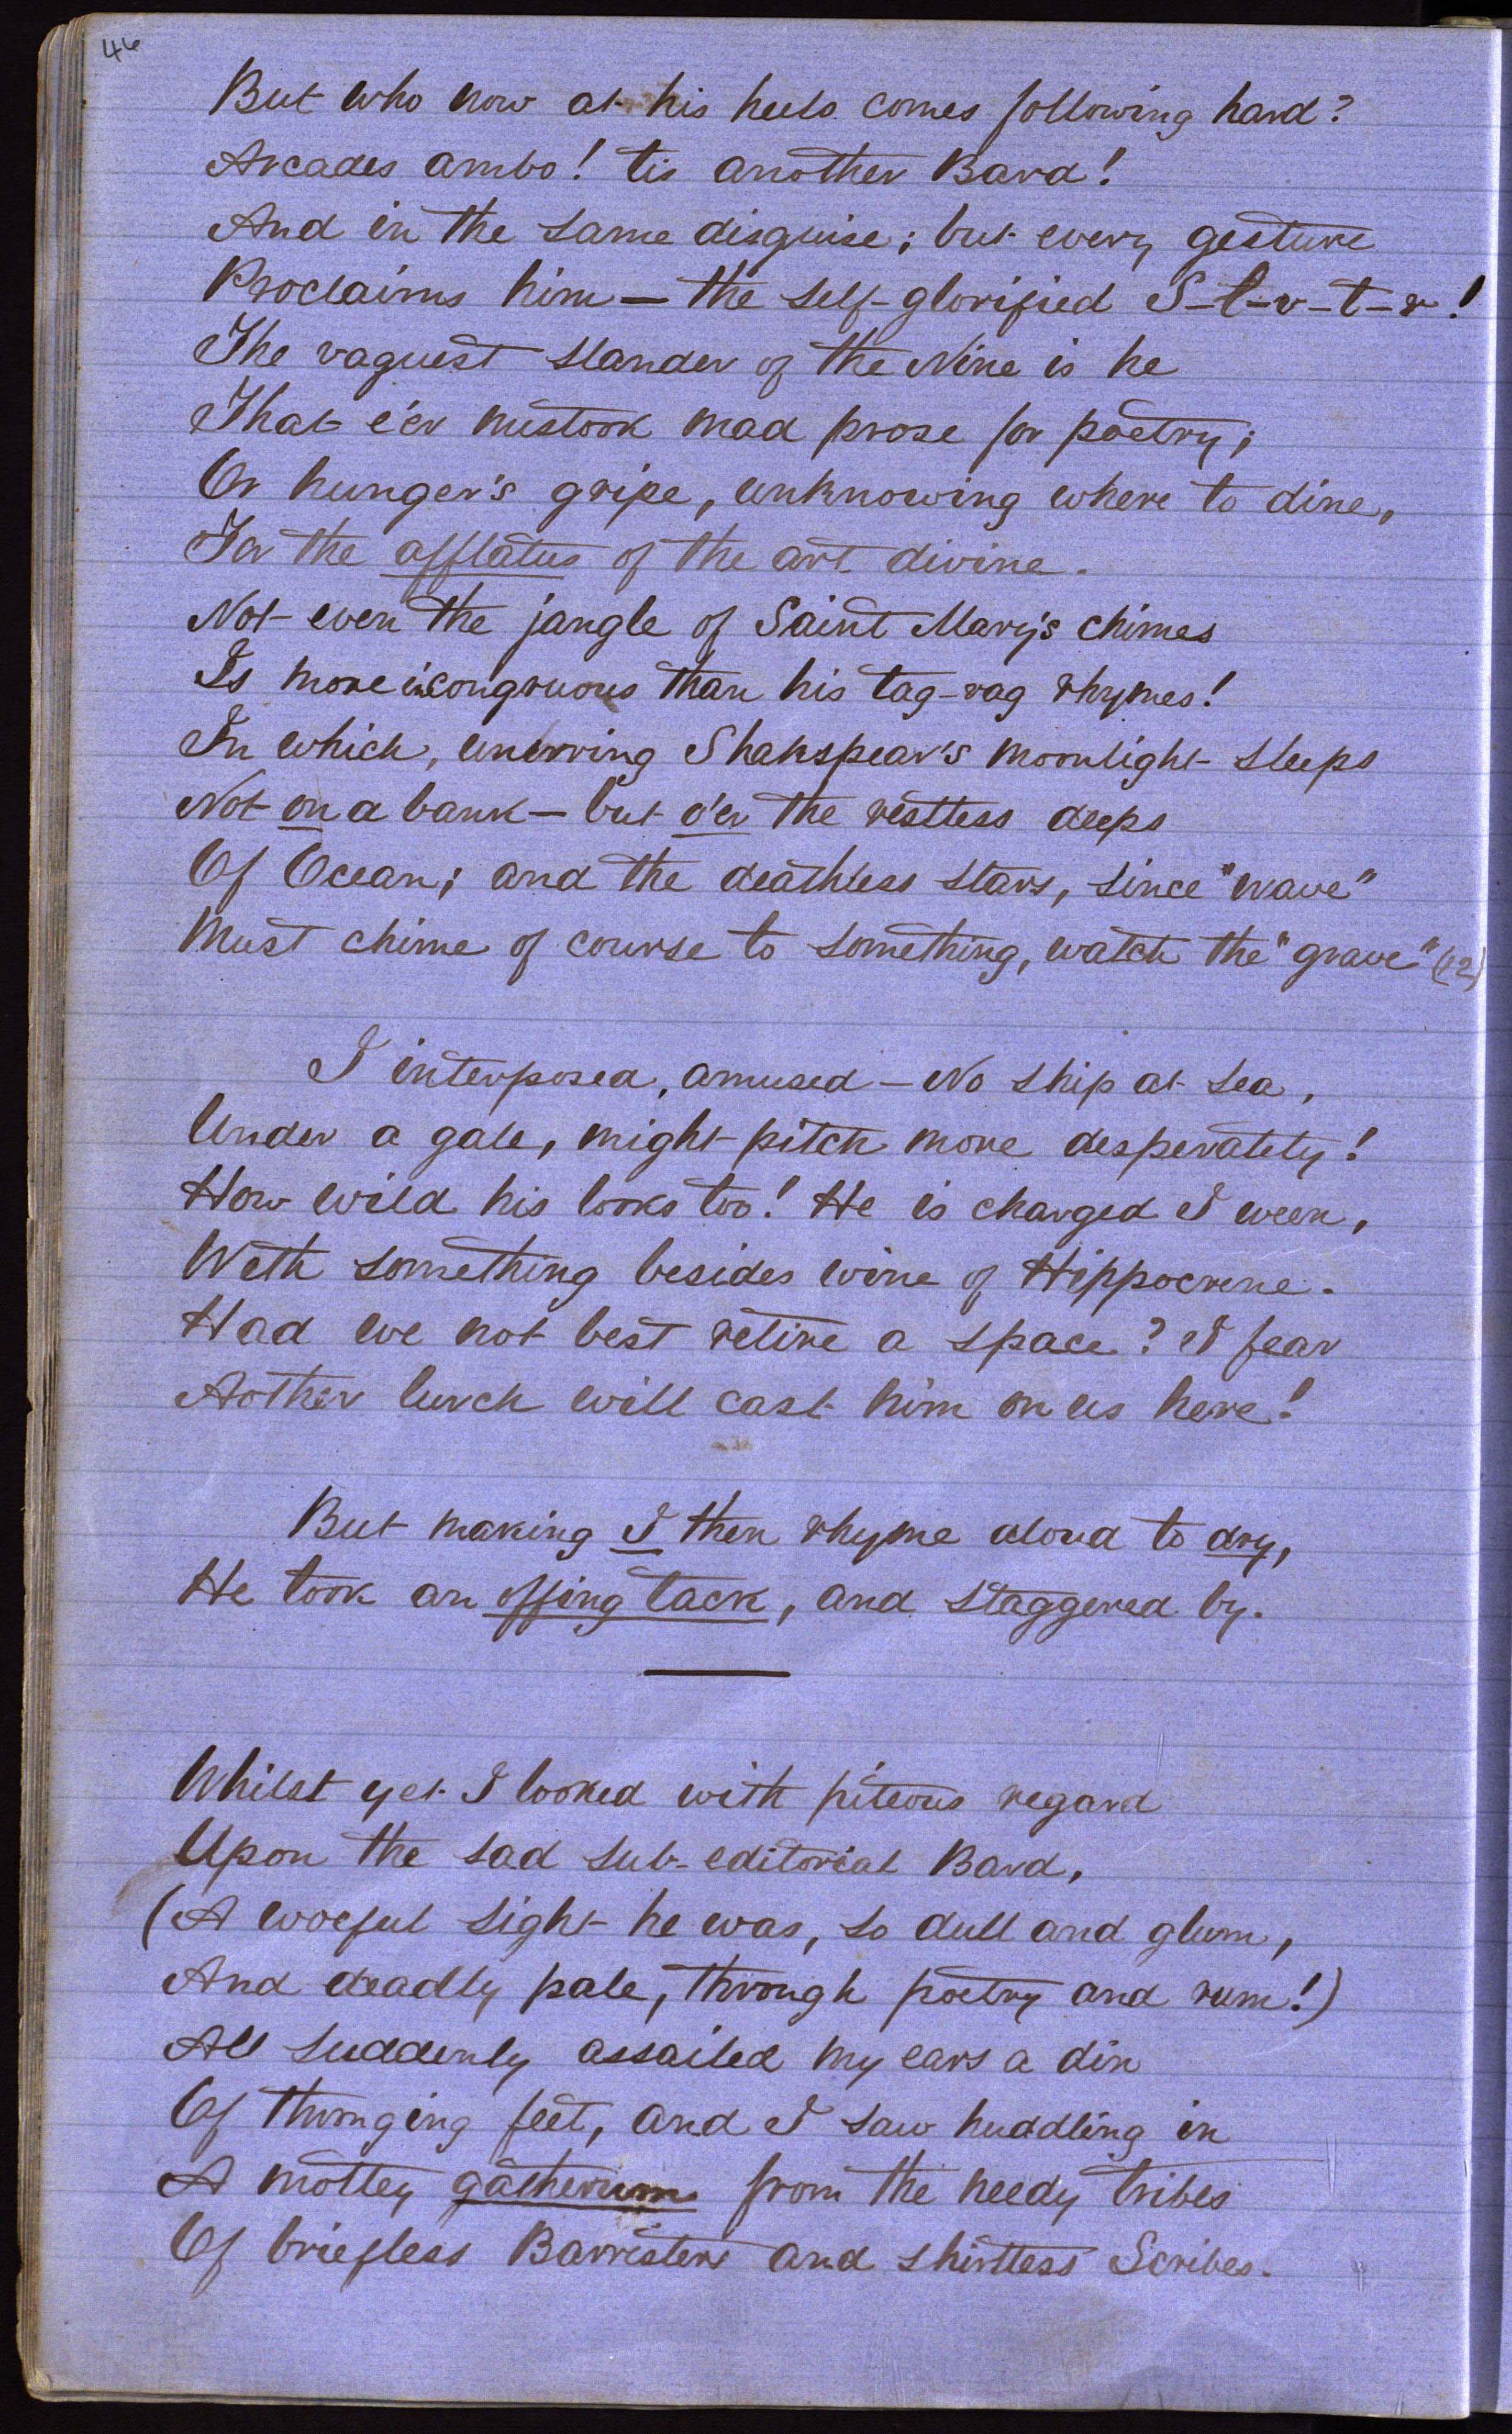 46
But who now at his heels comes following hard?
Arcades ambo! tis another Bard!
And in the same disguise; but every gesture
Proclaims him — the self-glorified S-l-v-t-r!
The vaguest slander of the Nine is he
That e'er mistook mad prose for poetry;
Or hunger's gripe, unknowing where to dine,
For the afflatus of the art divine.
Not even the jangle of Saint Mary's chimes
Is more incongruous than his tag-rag rhymes!
In which, unerring Shakspear's moonlight sleeps
Not on a bank — but o'er the restless deeps
Of Ocean; and the deathless stars, since "wave"
Must chime of course to something, watch the "grave" (12)
I interposed, amused — No ship at sea,
Under a gale, might pitch more desperately!
How wild his looks too! He is charged I ween,
With something besides wine of Hippocrene.
Had we not best retire a space? I fear
Aother lurch will cast him on us here!
But making I then rhyme aloud to dry,
He took an offing tack, and staggered by.
Whilst yet I looked with piteous regard
Upon the sad sub-editorial Bard,
(A woeful sight he was, so dull and glum,
And deadly pale, through poetry and rum!)
All suddenly assailed my ears a din
Of thronging feet, and I saw huddling in
A motley gatherum from the needy tribes
Of briefless Barristers and shirtless Scribes.